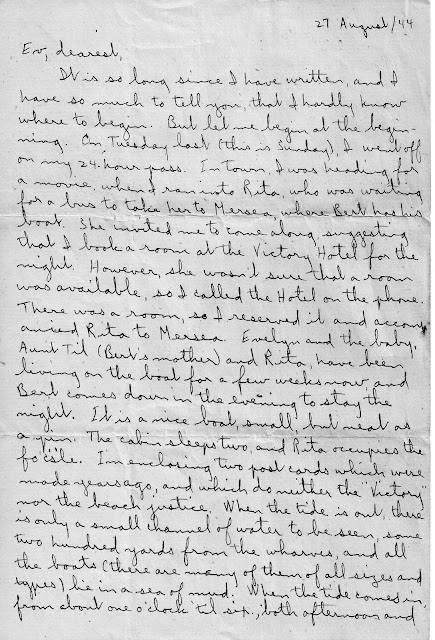 27 August/44
Ev, dearest,
It is so long since I have written, and I
have so much to tell you, that I hardly know
where to begin. But let me begin at the begin-
ning. On Tuesday last (this is Sunday), I went off
on my 24-hour pass. In town, I was heading for
a movie, when I ran into Rita, who was waiting
for a bus to take her to Mersea, where Bert has his
boat. She invited me to come along, suggesting
that I book a room at the Victory Hotel for the
night. However, she wasn't sure that a room
was available, so I called the Hotel on the phone.
There was a room, so I reserved it and accom-
panied Rita to Mersea. Evelyn and the baby,
Aunt Til (Bert's mother) and Rita, have been
living on the boat for a few weeks now, and
Bert comes down in the evening to stay the
night. It is a nice boat, small, but neat as
a pin. The cabin sleeps two, and Rita occupies the
fo'c'sle. I'm enclosing two post cards which were
made years ago, and which do neither the "Victory"
nor the beach justice. When the tide is out, there
is only a small channel of water to be seen, some
two hundred yards from the wharves, and all
the boats (there are many of them of all sizes and
types) lie in a sea of mud. When the tide comes in,
from about one o'clock 'til six, both afternoon and